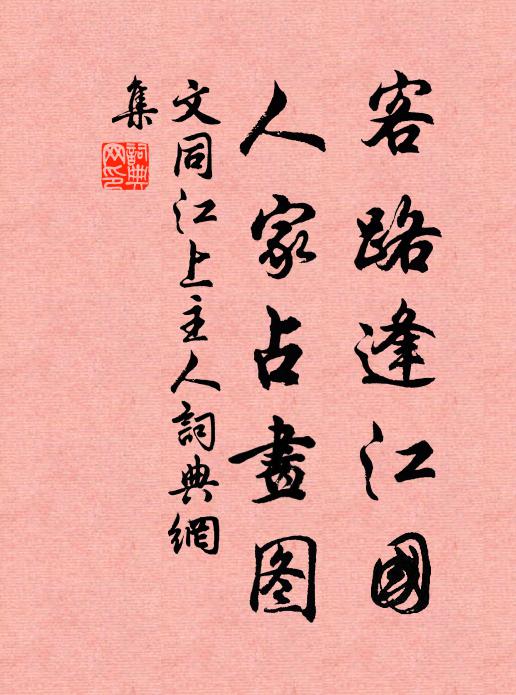 客路逢江國
人家占畫图
文同江上主人詞典網
集
詞典網印